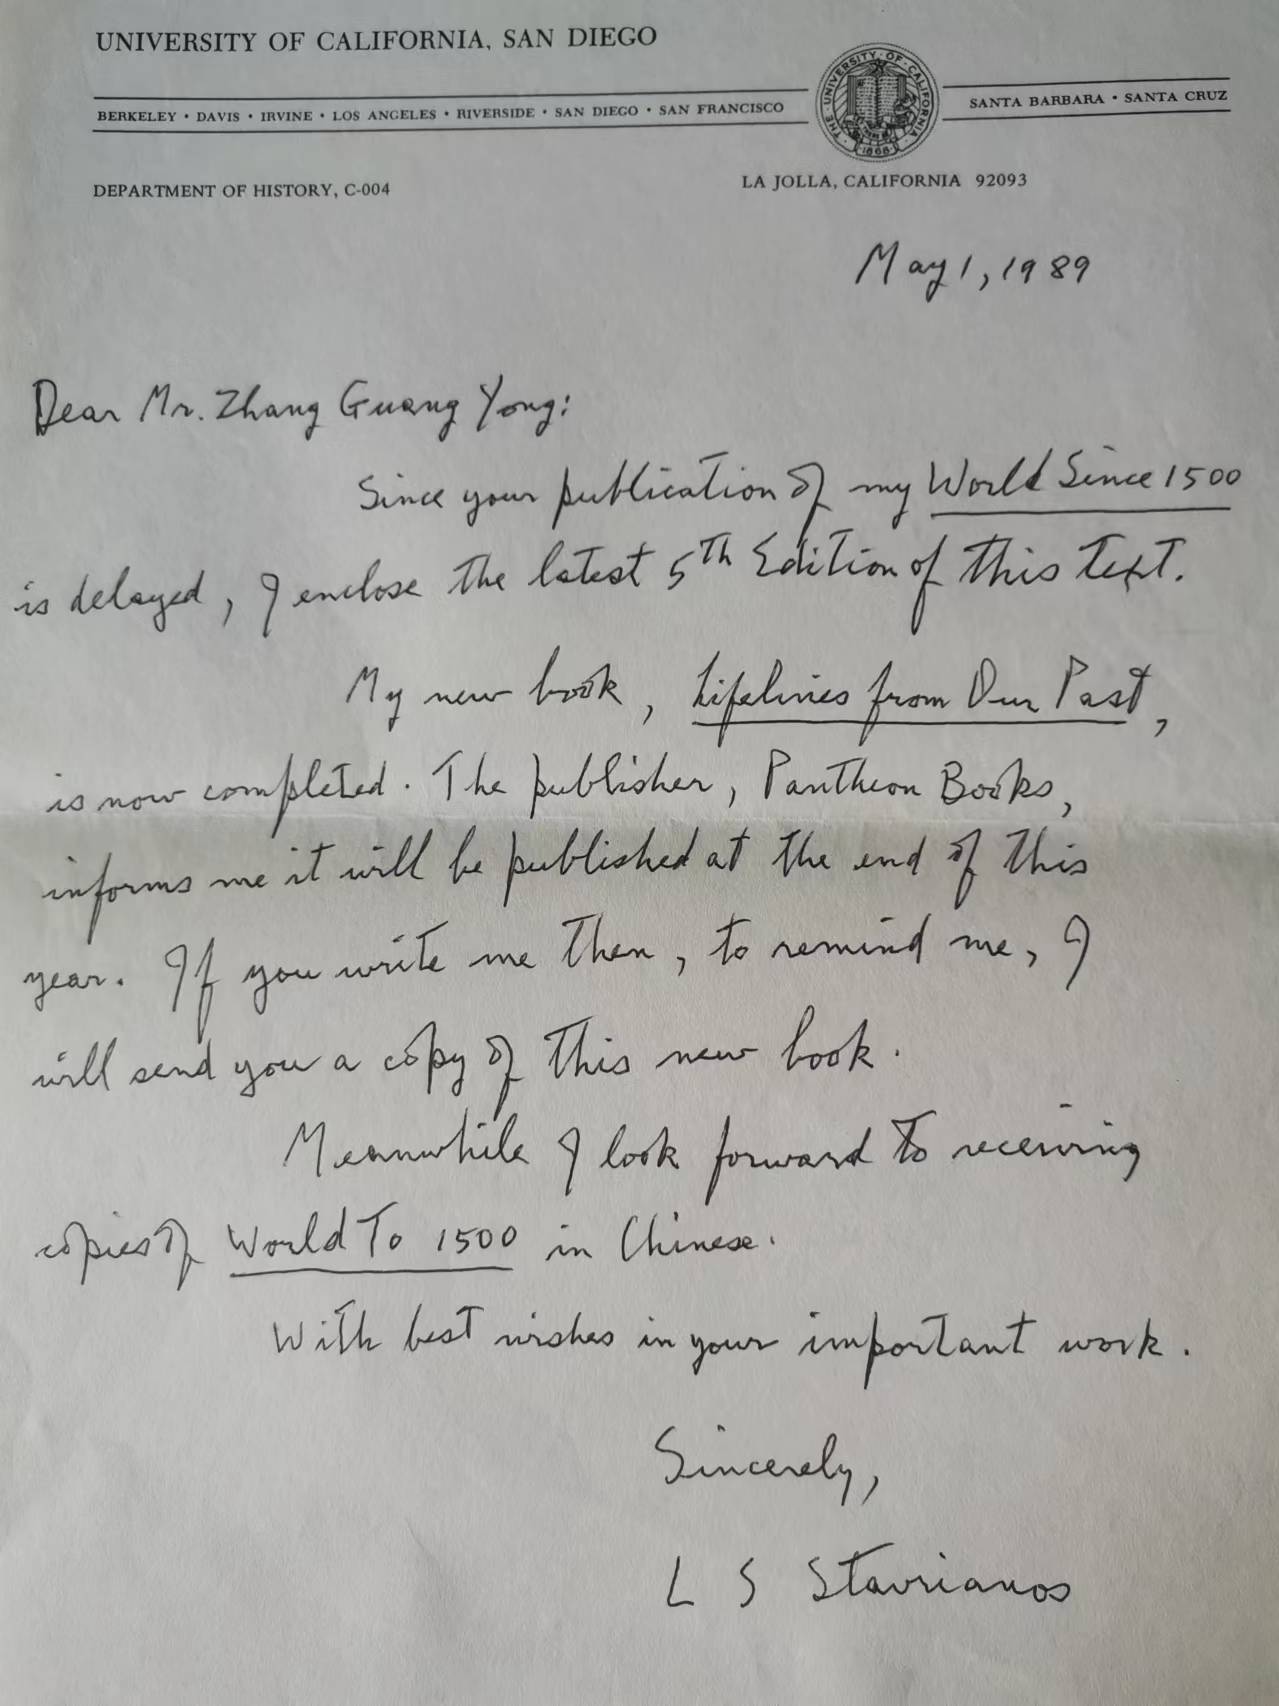 UNIVERSITY OF CALIFORNIA, SAN DIEGO
BERKELEY • DAVIS • IRVINE • LOS ANGELES • RIVERSIDE • SAN DIEGO • SAN FRANCISCO
SANTA BARBARA • SANTA CRUZ
THE UNIVERSITY OF CALIFORNIA
1868
DEPARTMENT OF HISTORY, C-004
LA JOLLA, CALIFORNIA 92093
May 1, 1989
Dear Mr. Zhang Guang Yong:
Since your publication of my World Since 1500
is delayed, I enclose the latest 5th Edition of this text.
My new book, Lifelines from Our Past,
is now completed. The publisher, Pantheon Books,
informs me it will be published at the end of this
year. If you write me then, to remind me, I
will send you a copy of this new book.
Meanwhile I look forward to receiving
copies of World To 1500 in Chinese.
With best wishes in your important work.
Sincerely,
L S Stavrianos